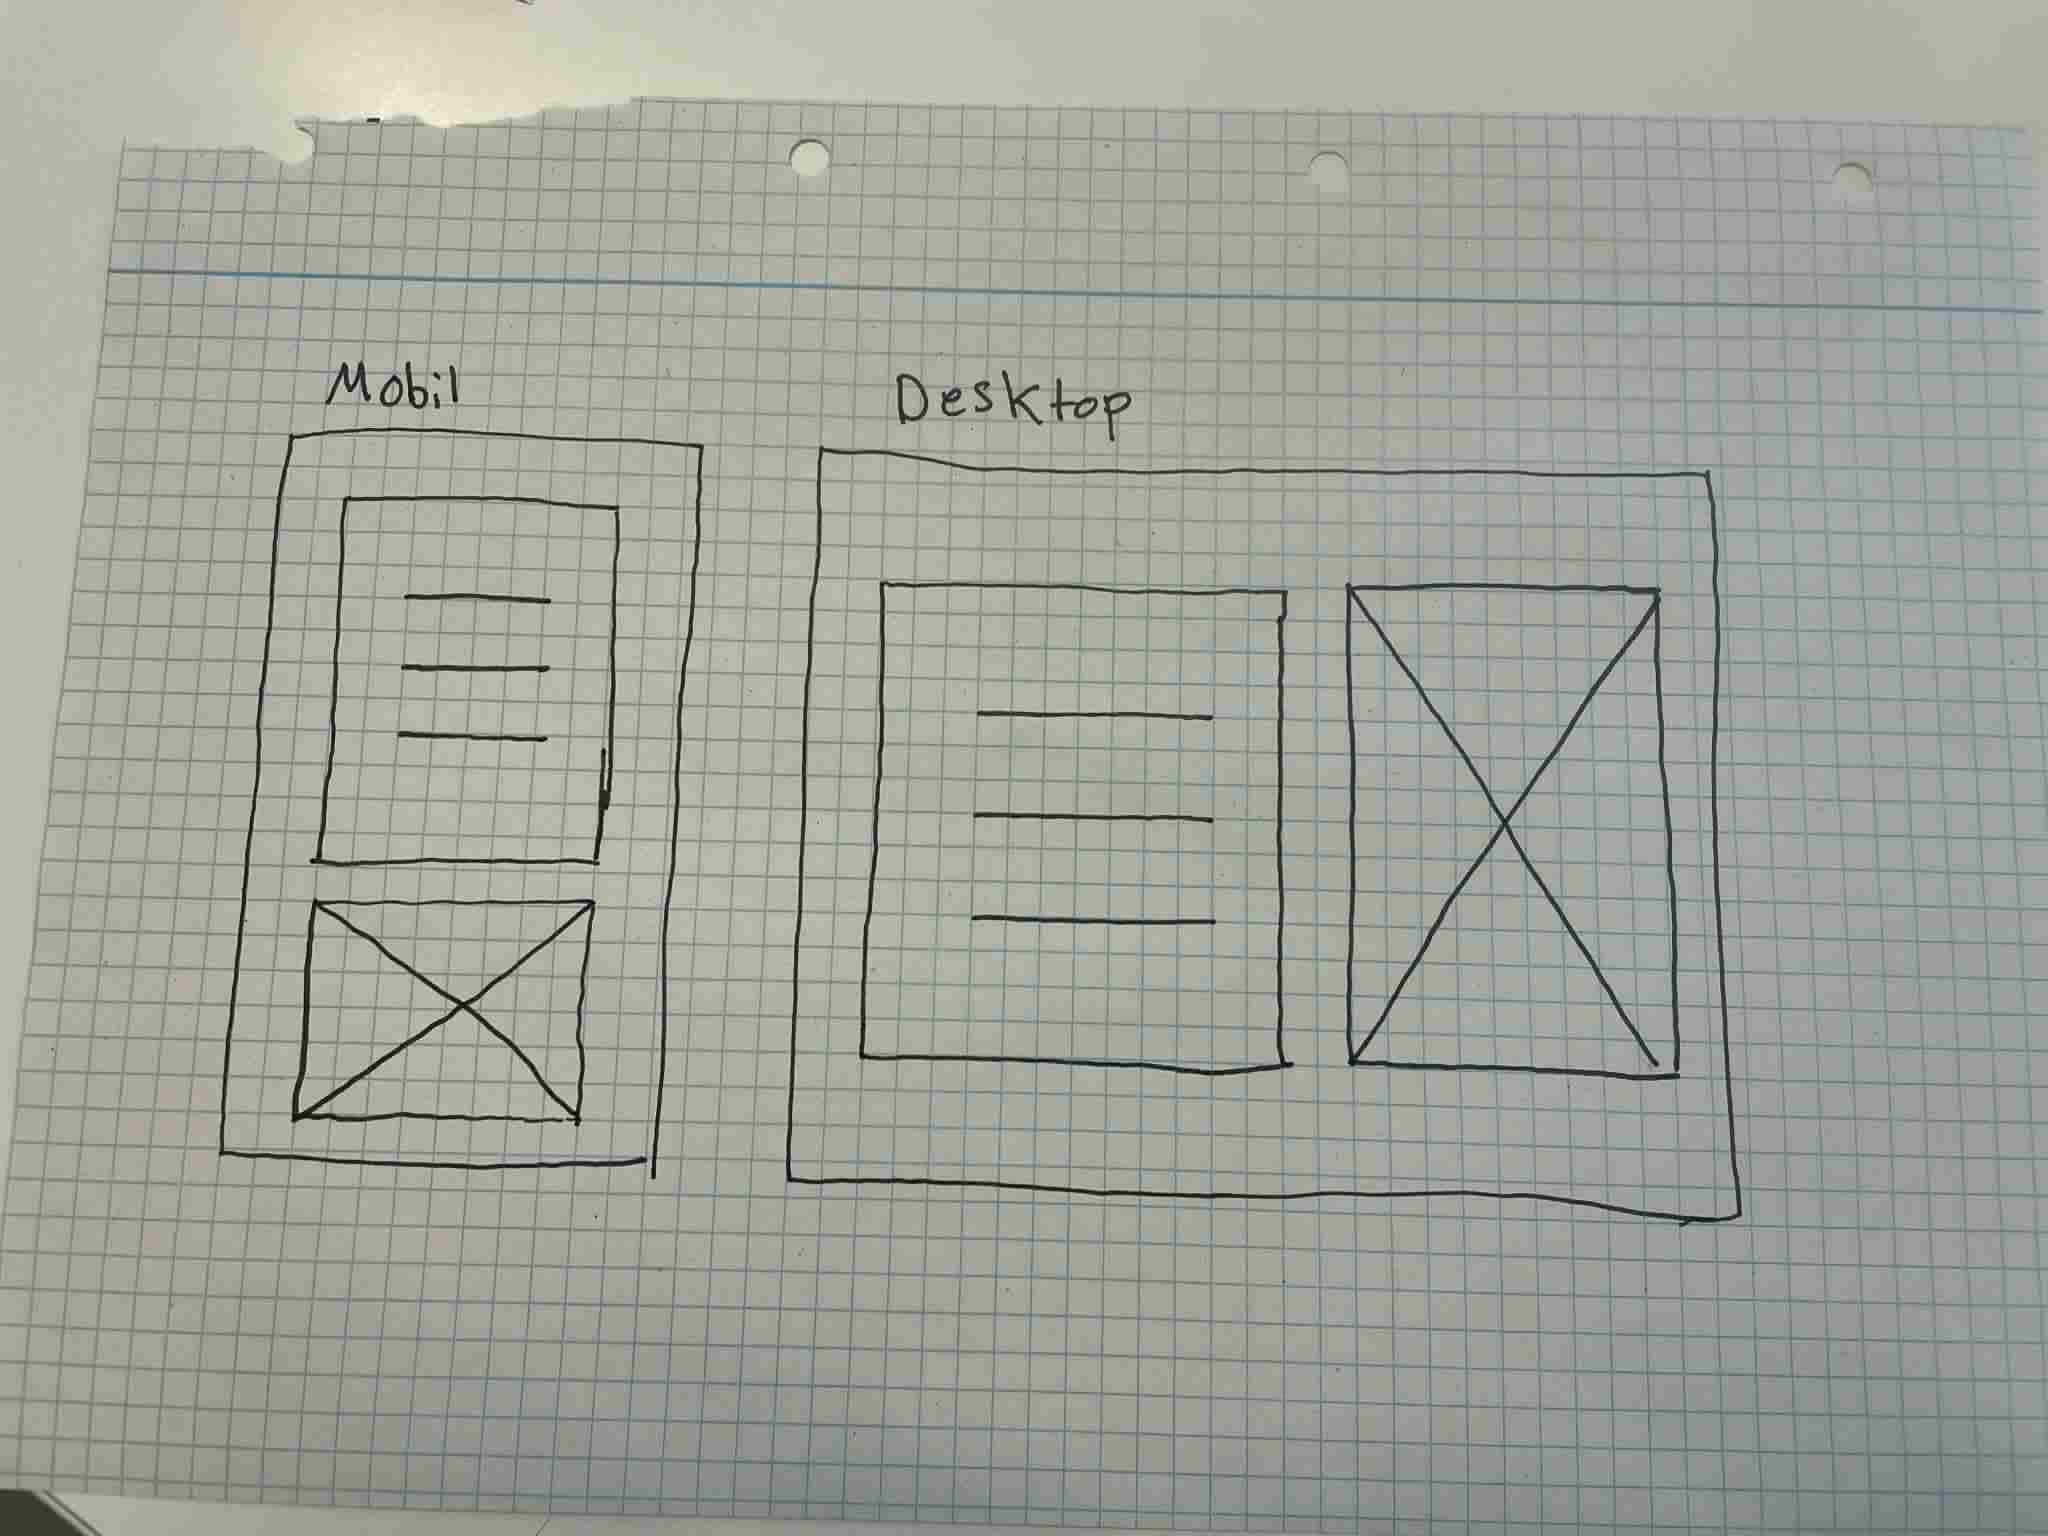 Mobil
Desktop